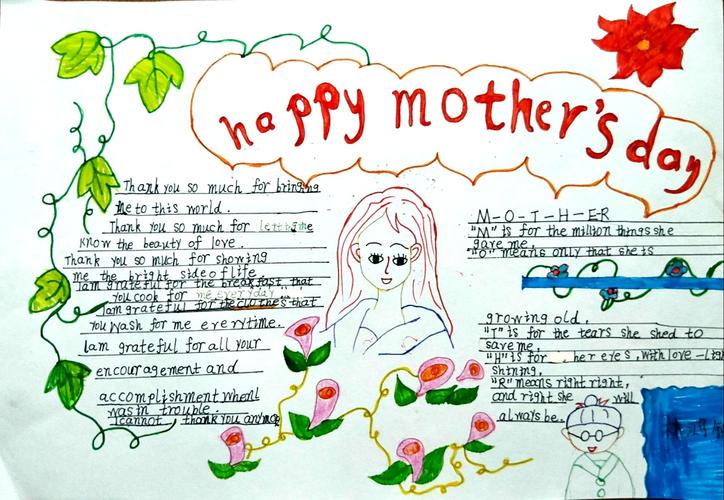 happy mother's day
Thank you so much for bringing
me to this world.
Thank you so much for letting me
know the beauty of love.
Thank you so much for showing
me the bright side of life
Iam grateful for the breakfast that
you cook for me everyday
Iam grateful for the clothes that
you wash for me everytime.
Iam grateful for all your
encouragement and
accomplishment when I
was in trouble.
I cannot thank you anymore
M-O-T-H-E-R
"M" is for the million things she
gave me.
"O" means only that she is
growing old.
"T" is for the tears she shed to
save me.
"H" is for her eyes, with love-light
shining.
"R" means right right,
and right she will
always be.